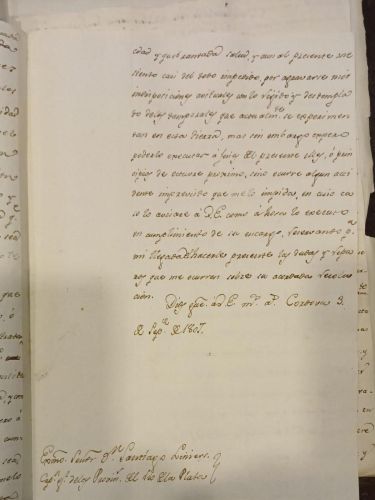 edad y quebrantada salud, y aun al presente me
siento casi del todo impedido, por agravarse mis
indisposiciones actuales con lo rigido y destempla
do de los temporales que actualm.te se experimen
tan en esta tierra, mas sin embargo espero
poderlo executar á fines del presente mes, ó prin
cipios de octubre proximo, si no ocurre algun acci
dente imprevisto que me lo impida, en cuio ca
so lo avisaré a V.E. como ahora lo executo
en cumplimiento de su encargo, reservando p.a
mi llegada el hacerle presente las dudas y repa
ros que me ocurren sobre su acertada resolu
cion.
Dios gue. a V.E. m.s a.s Cordova 3.
de Sep.re de 1807.
Exmo. Señor D.n Santiago Liniers
Cap.n g.l de las Provin.s del Rio de la Plata